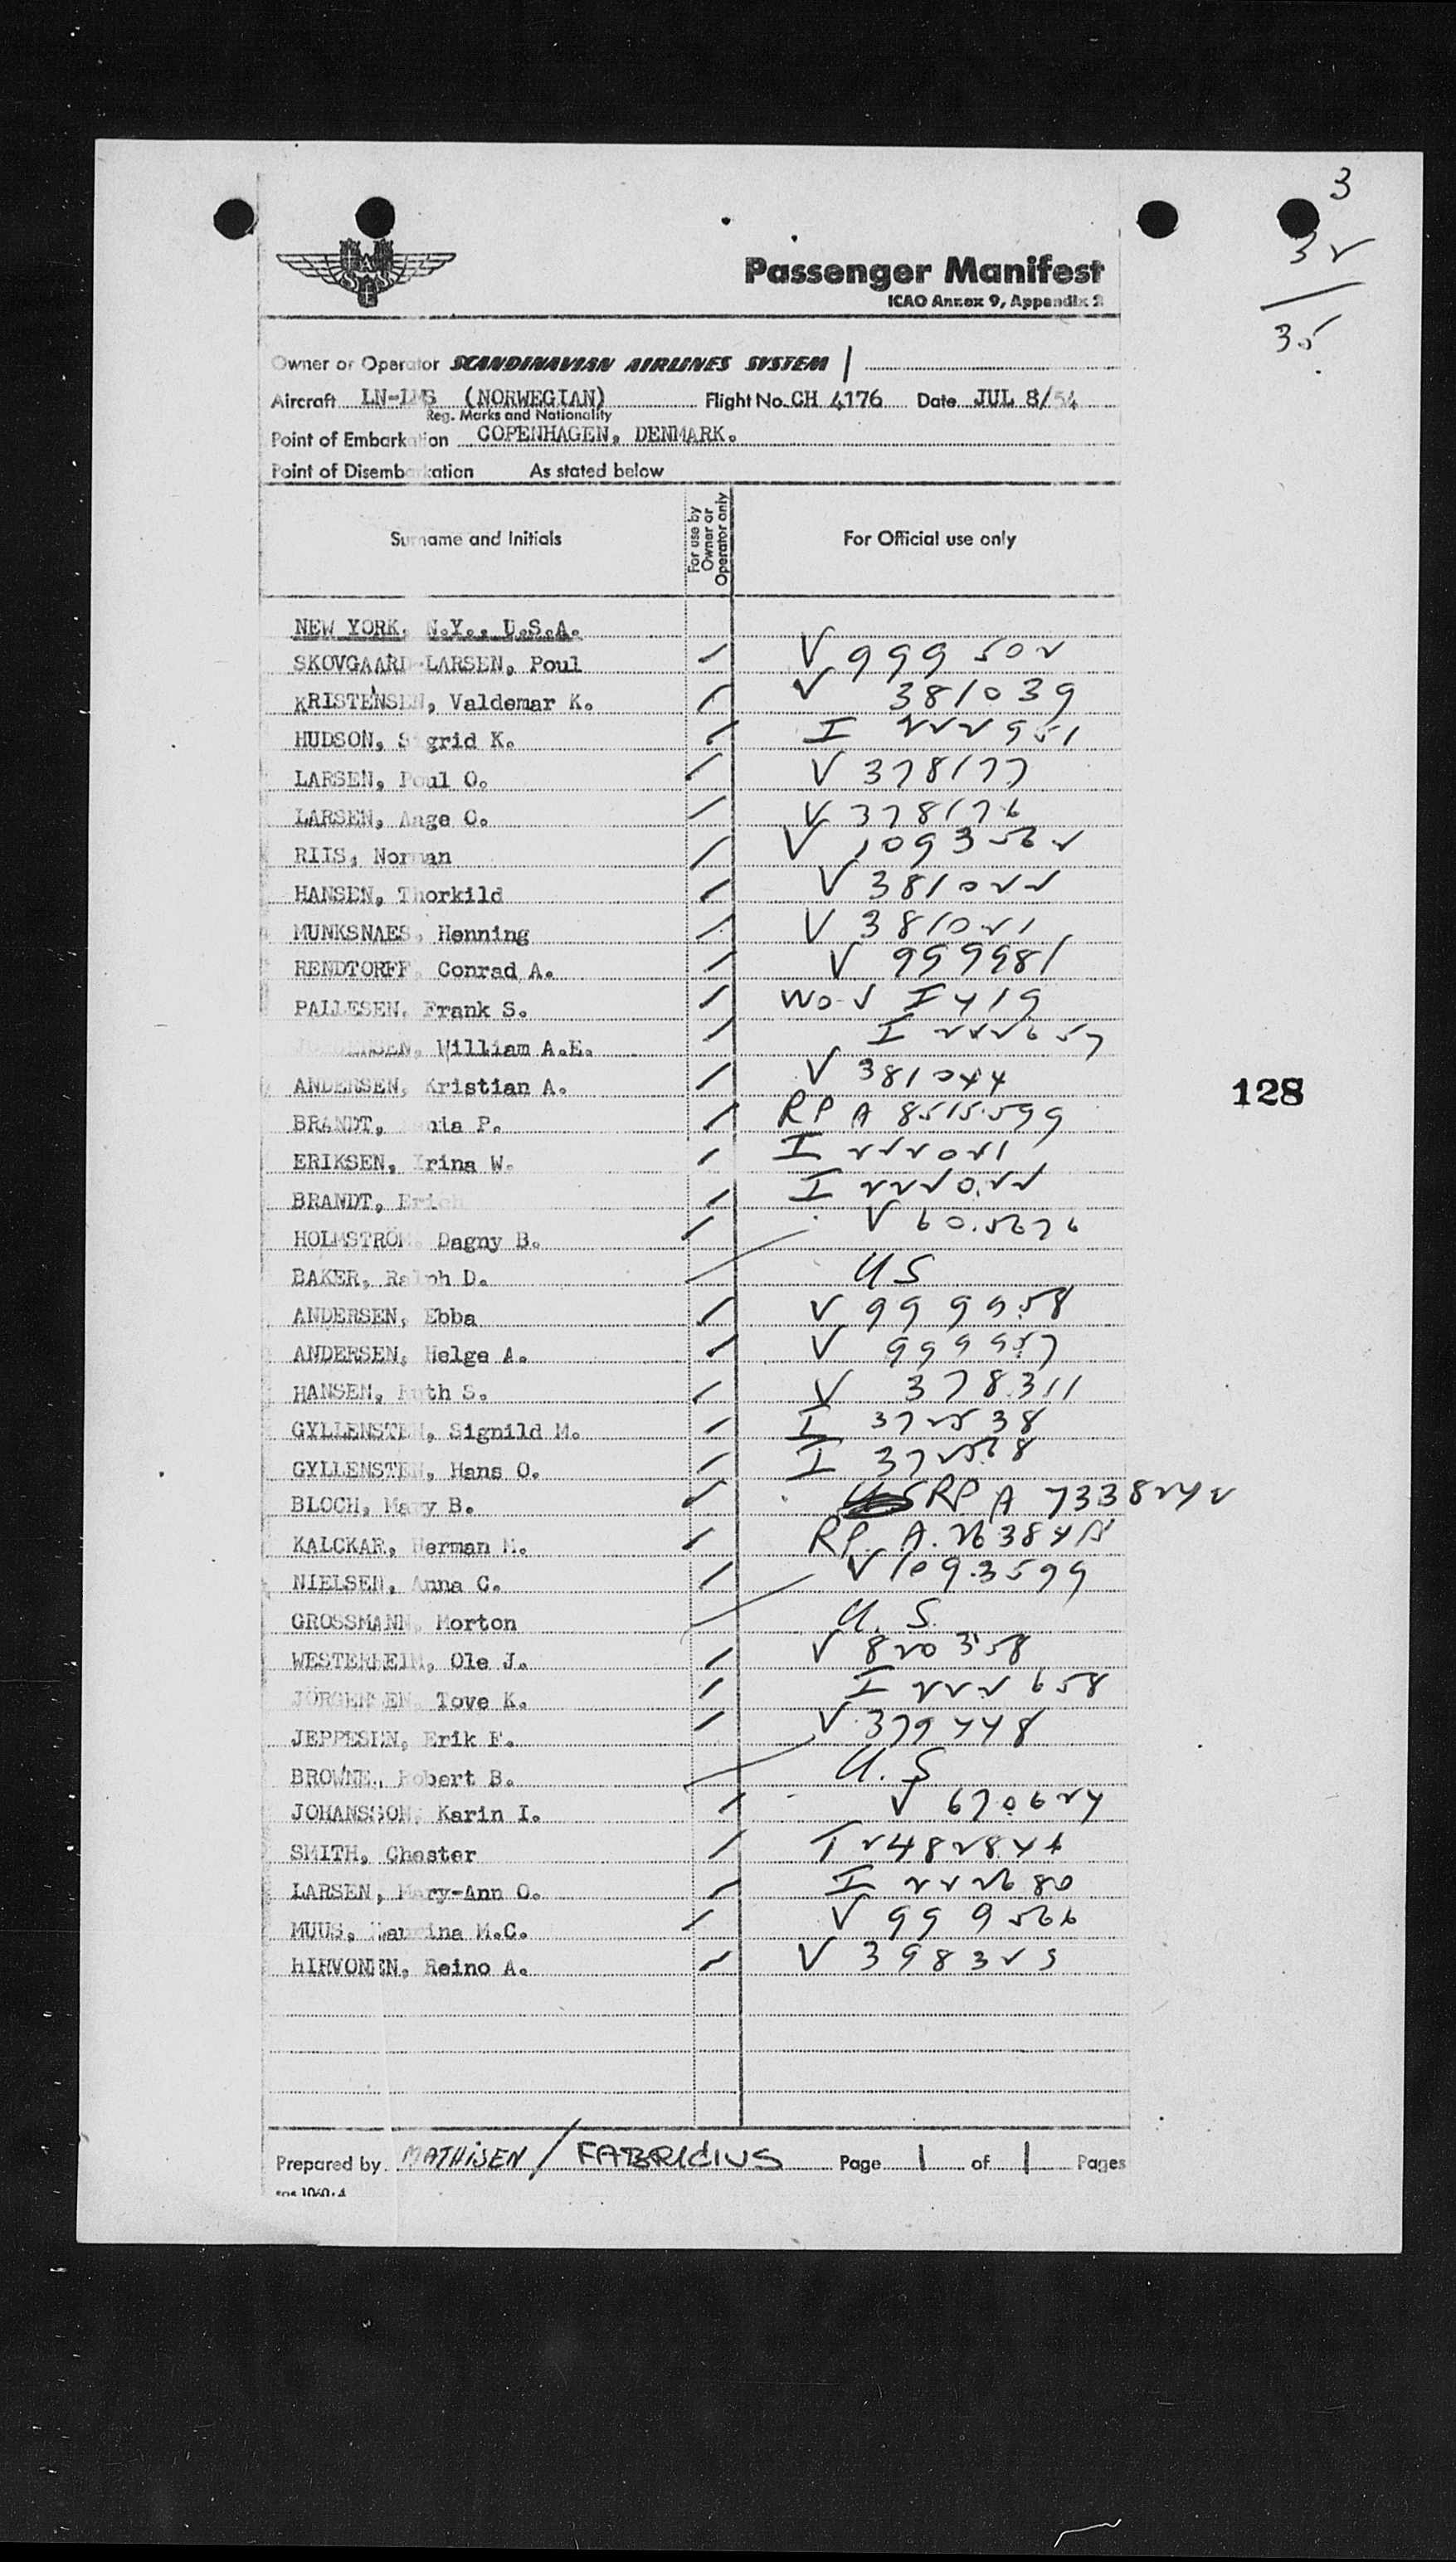 3
32
35
SAS
Passenger Manifest
ICAO Annex 9, Appendix 2
Owner or Operator SCANDINAVIAN AIRLINES SYSTEM
Aircraft LN-LMS (NORWEGIAN) Flight No. CH 4176 Date JUL 8/54
Reg. Marks and Nationality
Point of Embarkation COPENHAGEN, DENMARK.
Point of Disembarkation As stated below
Surname and Initials For use by Owner or Operator only For Official use only
NEW YORK, N.Y., U.S.A.
SKOVGAARD-LARSEN, Poul V 999502
KRISTENSEN, Valdemar K. V 381039
HUDSON, Sigrid K. I 222951
LARSEN, Poul O. V 378177
LARSEN, Aage O. V 378176
RIIS, Norman V 1093562
HANSEN, Thorkild V 381022
MUNKSNAES, Henning V 381021
RENDTORFF, Conrad A. V 999981
PALLESEN, Frank S. I 419
William A.E. I 222657
ANDERSEN, Kristian A. V 381044
BRANDT, P. RP A 8515599
ERIKSEN, Irina W. I 222021
BRANDT, Erich I 222022
HOLMSTRÖM, Dagny B. V 605676
BAKER, Ralph D. US
ANDERSEN, Ebba V 999958
ANDERSEN, Helge A. V 999957
HANSEN, Ruth S. V 378311
GYLLENSTEN, Signild M. I 372538
GYLLENSTEN, Hans O. I 372568
BLOCH, Mary B. RP A 7338242
KALCKAR, Herman M. RP A
NIELSEN, Anna C. V 1093599
GROSSMANN, Morton U.S.
WESTERHEIM, Ole J. V 820358
JÖRGENSEN, Tove K. I 222658
JEPPESEN, Erik F. V 379448
BROWNE, Robert B. U.S
JOHANSSON, Karin I. V 670624
SMITH, Chester
LARSEN, Mary-Ann O. I 222680
MUUS, M.C. V 999566
HIRVONEN, Reino A. V 398323
128
Prepared by MATHISEN / FABRICIUS Page 1 of 1 Pages